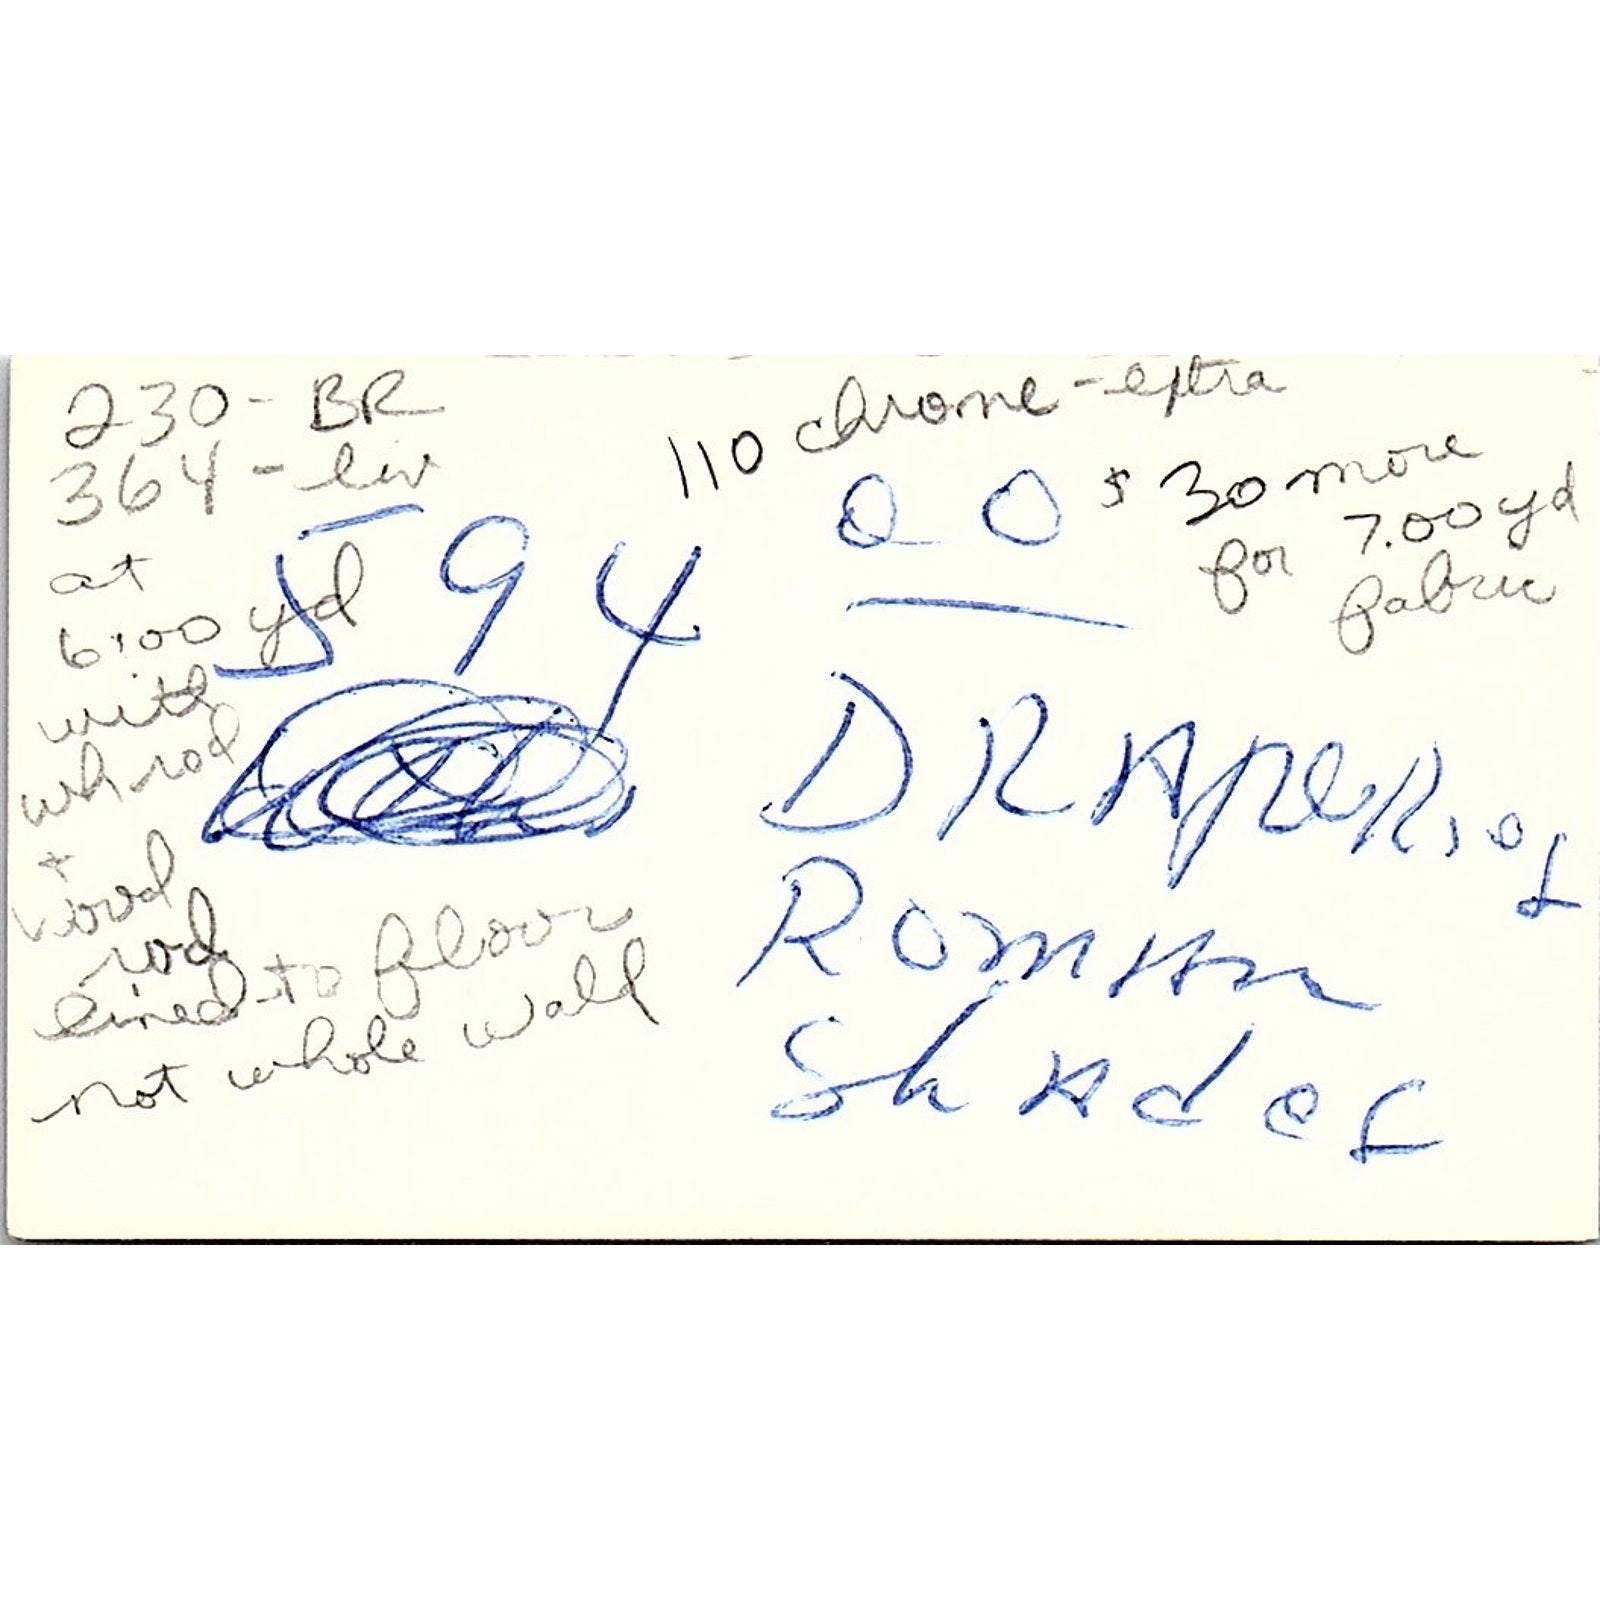 230 - BR
364 - liv
at
6:00 yd
with
wh rod
+
wood
rod
lined to floor
not whole wall
594 00
110 chrome - extra
$30 more
for 7.00 yd
fabric
DRAperies
Roman
Shades